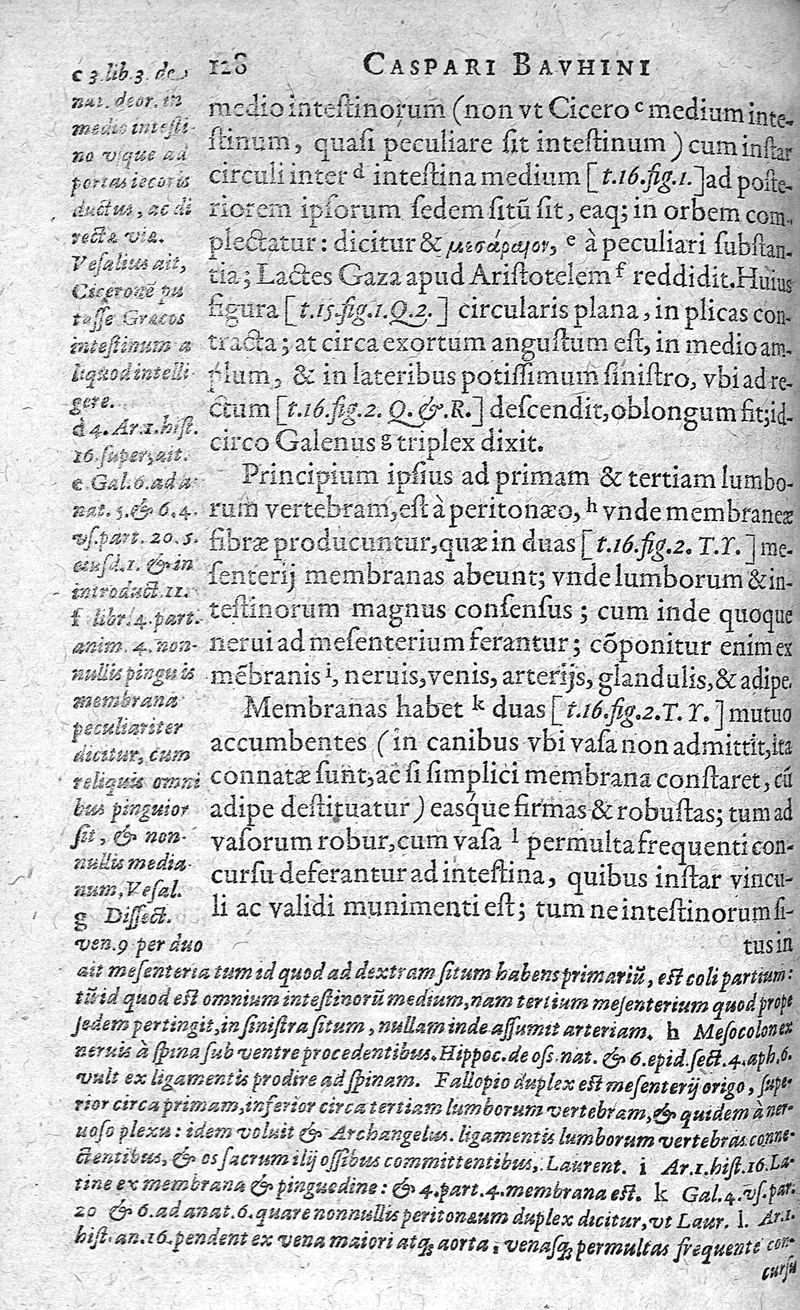 128 CASPARI BAVHINI
medio intestinorum (non vt Cicero c medium inte-
ſtinum, quaſi peculiare ſit inteſtinum) cum inſtar
circuli inter d inteſtina medium [t.16.fig.1.] ad poſte-
riorem ipſorum ſedem ſitū ſit, eaq; in orbem com-
plectatur: dicitur & μεσάραιον, e à peculiari ſubſtan-
tia; Lactes Gaza apud Ariſtotelem f reddidit. Huius
figura [t.15.fig.1.Q.2.] circularis plana, in plicas con-
tracta; at circa exortum anguſtum eſt, in medio am-
plum, & in lateribus potiſſimum ſiniſtro, vbi ad re-
ctum [t.16.fig.2. Q. &. R.] deſcendit, oblongum fit; id-
circo Galenus g triplex dixit.
Principium ipſius ad primam & tertiam lumbo-
rum vertebram, eſt à peritonæo, h vnde membraneæ
fibræ producuntur, quæ in duas [t.16.fig.2. T.Y.] me-
ſenterij membranas abeunt; vnde lumborum & in-
teſtinorum magnus conſenſus; cum inde quoque
nerui ad meſenterium ferantur; cōponitur enim ex
mēbranis i, neruis, venis, arterijs, glandulis, & adipe.
Membranas habet k duas [t.16.fig.2.T.Y.] mutuo
accumbentes (in canibus vbi vaſa non admittit, ita
connatæ ſunt, ac ſi ſimplici membrana conſtaret, cū
adipe deſtituatur) easq́ue firmas & robuſtas; tum ad
vaſorum robur, cum vaſa l permulta frequenti con-
curſu deferantur ad inteſtina, quibus inſtar vincu-
li ac validi munimenti eſt; tum ne inteſtinorum ſi-
tus in
c 3. lib. 3. de
nat. deor. in
medio inteſti-
no vſque ad
portas iecoris
ductus, ac di
recta via.
Veſalius ait,
Ciceronē pu
taſſe Græcos
inteſtinum a
liquod intelli
gere.
d 4. Ar. 1. hiſt.
16. ſuper, ait.
e Gal. 6. ad a-
nat. 5. & 6. 4.
vſ. part. 20. 5.
euſd. 1. & in
introduct. 11.
f libr. 4. part.
anim. 4. non-
nullis pinguis
membrana
peculiariter
dicitur, cum
reliquis omni
bus pinguior
ſit, & non-
nullis media-
num, Veſal.
g Diſſect.
ven. 9 per duo
ait meſenteria tum id quod ad dextram ſitum habens primariū, eſt coli partium:
tū id quod eſt omnium inteſtinorū medium, nam tertium meſenterium quod prope
ſedem pertingit, in ſiniſtra ſitum, nullam inde aſſumit arteriam. h Meſocolon ex
neruis à ſpina ſub ventre procedentibus. Hippoc. de oſſ. nat. & 6. epid. ſect. 4. aph. 6.
vult ex ligamentis prodire ad ſpinam. Fallopio duplex eſt meſenterij origo, ſupe-
rior circa primam, inferior circa tertiam lumborum vertebram, & quidem à ner-
uoſo plexu: idem voluit & Archangelus. ligamentis lumborum vertebras conne-
ctentibus, & os ſacrum ilij oſſibus committentibus, Laurent. i Ar. 1. hiſt. 16. La-
tine ex membrana & pinguedine: & 4. part. 4. membrana eſt. k Gal. 4. vſ. par.
20 & 6. ad anat. 6. quare nonnullis peritonæum duplex dicitur, vt Laur. l. Ar. 1.
hiſt. an. 16. pendent ex vena maiori atq; aorta, venaſq; permultas frequente con-
curſu